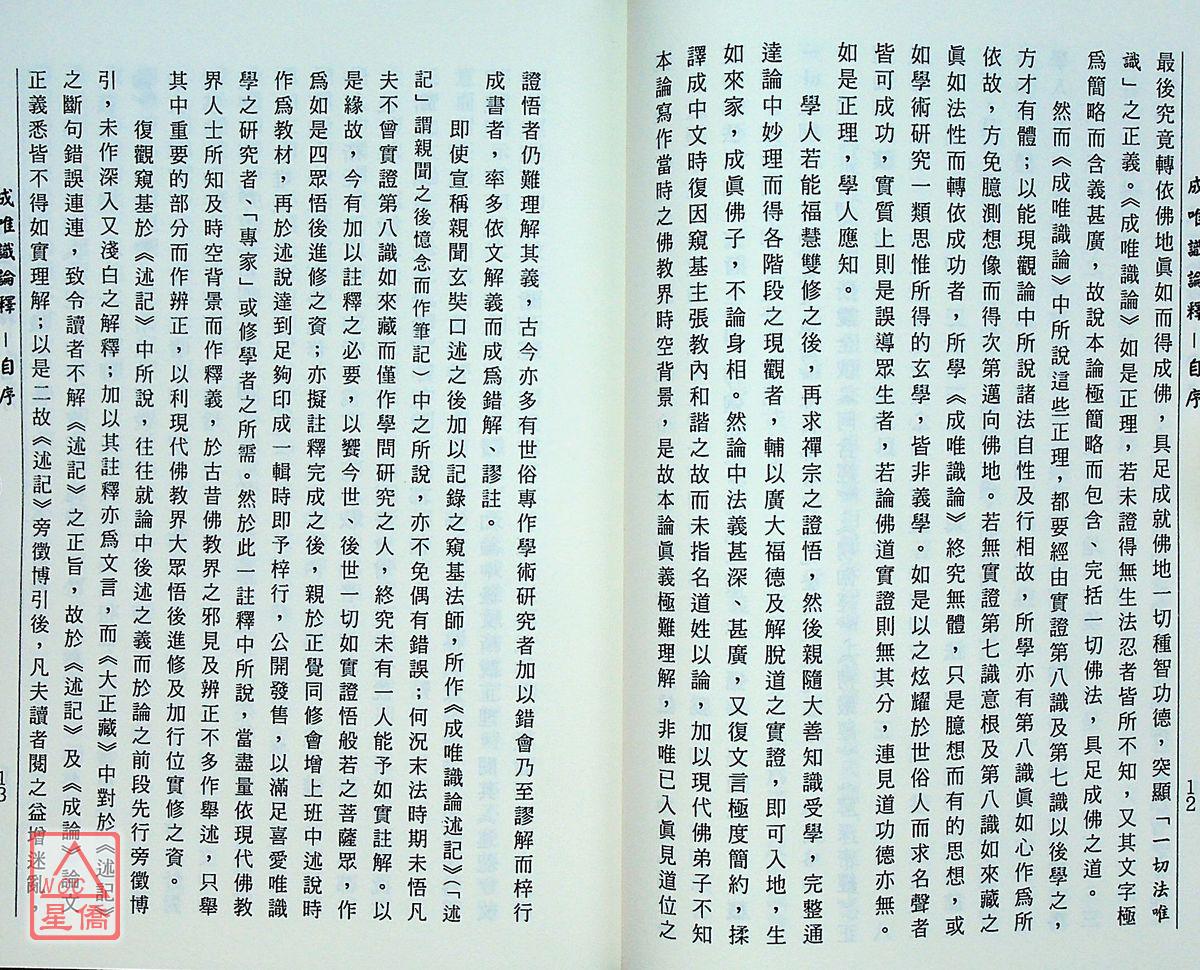 成唯識論釋－自序
12
最後究竟轉依佛地眞如而得成佛，具足成就佛地一切種智功德，突顯「一切法唯
識」之正義。《成唯識論》如是正理，若未證得無生法忍者皆所不知，又其文字極
爲簡略而含義甚廣，故說本論極簡略而包含、完括一切佛法，具足成佛之道。
然而《成唯識論》中所說這些正理，都要經由實證第八識及第七識以後學之，
方才有體；以能現觀論中所說諸法自性及行相故，所學亦有第八識眞如心作爲所
依故，方免臆測想像而得次第邁向佛地。若無實證第七識意根及第八識如來藏之
眞如法性而轉依成功者，所學《成唯識論》終究無體，只是臆想而有的思想，或
如學術研究一類思惟所得的玄學，皆非義學。如是以之炫耀於世俗人而求名聲者
皆可成功，實質上則是誤導眾生者，若論佛道實證則無其分，連見道功德亦無。
如是正理，學人應知。
學人若能福慧雙修之後，再求禪宗之證悟，然後親隨大善知識受學，完整通
達論中妙理而得各階段之現觀者，輔以廣大福德及解脫道之實證，即可入地，生
如來家，成眞佛子，不論身相。然論中法義甚深、甚廣，又復文言極度簡約，揉
譯成中文時復因窺基主張教內和諧之故而未指名道姓以論，加以現代佛弟子不知
本論寫作當時之佛教界時空背景，是故本論眞義極難理解，非唯已入眞見道位之
證悟者仍難理解其義，古今亦多有世俗專作學術研究者加以錯會乃至謬解而梓行
成書者，率多依文解義而成爲錯解、謬註。
即使宣稱親聞玄奘口述之後加以記錄之窺基法師，所作《成唯識論述記》（「述
記」謂親聞之後憶念而作筆記）中之所說，亦不免偶有錯誤；何況末法時期未悟凡
夫不曾實證第八識如來藏而僅作學問研究之人，終究未有一人能予如實註解。以
是緣故，今有加以註釋之必要，以饗今世、後世一切如實證悟般若之菩薩眾，作
爲如是四眾悟後進修之資；亦擬註釋完成之後，親於正覺同修會增上班中述說時
作爲教材，再於述說達到足夠印成一輯時即予梓行，公開發售，以滿足喜愛唯識
學之研究者、「專家」或修學者之所需。然於此一註釋中所說，當盡量依現代佛教
界人士所知及時空背景而作釋義，於古昔佛教界之邪見及辨正不多作舉述，只舉
其中重要的部分而作辨正，以利現代佛教界大眾悟後進修及加行位實修之資。
復觀窺基於《述記》中所說，往往就論中後述之義而於論之前段先行旁徵博
引，未作深入又淺白之解釋；加以其註釋亦爲文言，而《大正藏》中對於《述記》
之斷句錯誤連連，致令讀者不解《述記》之正旨，故於《述記》及《成論》論文
正義悉皆不得如實理解；以是二故《述記》旁徵博引後，凡夫讀者閱之益增迷亂，
成唯識論釋－自序
13
WCC
星僑